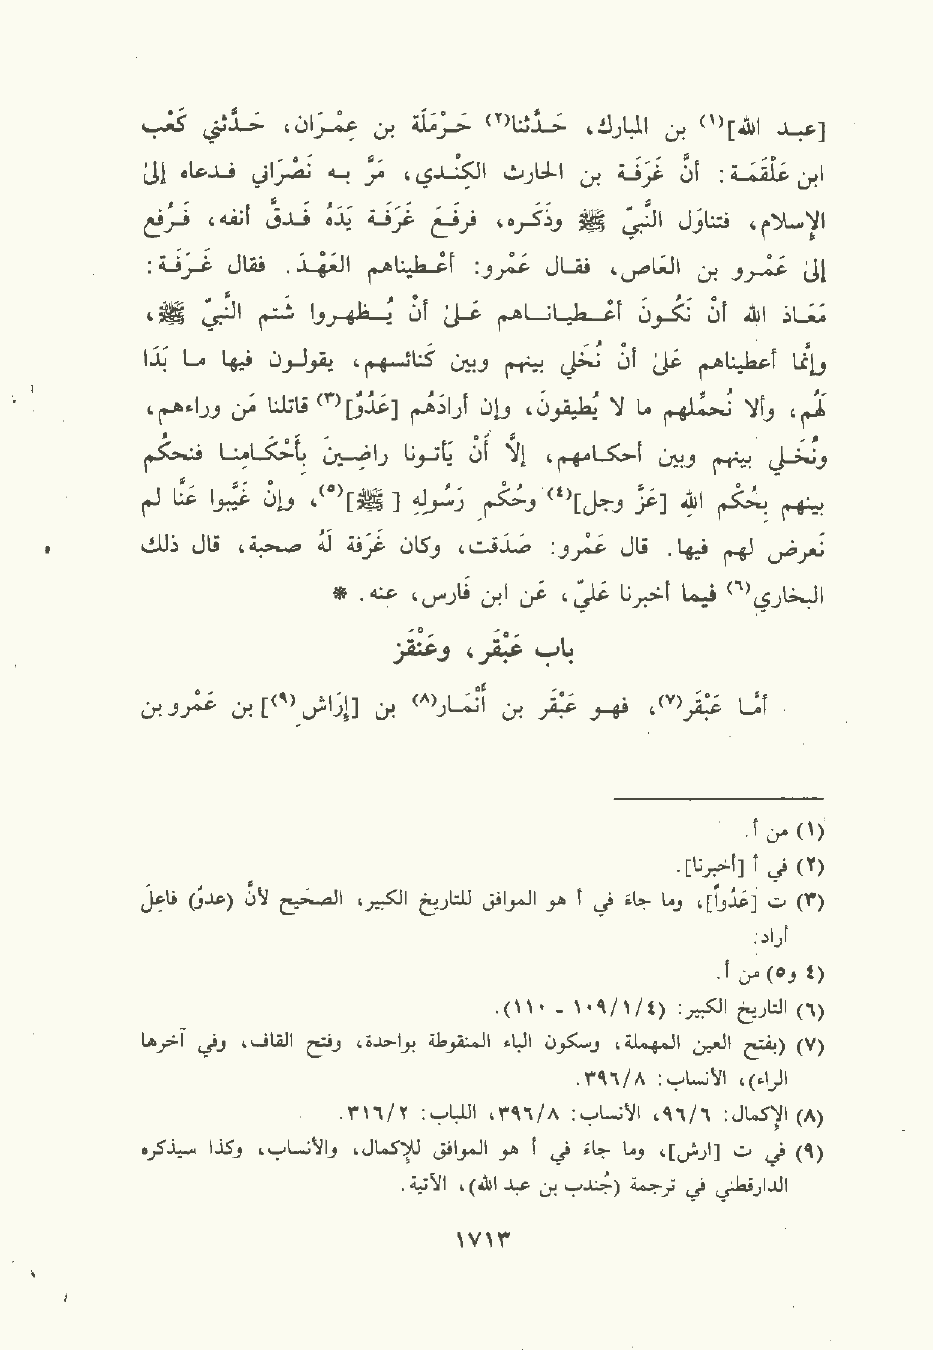 [عبد الله]<sup>(١)</sup> بن المبارك، حَدَّثنا<sup>(٢)</sup> حَرْمَلَة بن عِمْرَان، حَدَّثني كَعْب
ابن عَلْقَمَة: أن غَرَفَة بن الحارث الكِنْدي، مَرَّ به نَصْرَاني فدعاه إلىٰ
الإسلام، فتناوَل النَّبيَّ ﷺ وذَكَره، فرفَع غَرَفَة يَدَهُ فدَقَّ أنفه، فرُفع
إلىٰ عَمْرو بن العَاص، فقال عَمْرو: أعْطيناهم العَهْدَ. فقال غَرَفَة:
مَعَاذ الله أن نكُونَ أعْطيناهم علىٰ أن يُظهروا شَتم النَّبيّ ﷺ،
وإنَّما أعطيناهم علىٰ أن نُخلي بينهم وبين كنَائسهم، يقولون فيها ما بَدَا
لَهُم، وألا نُحمِّلهم ما لا يُطيقونَ، وإن أرادَهُم [عَدُوٌ]<sup>(٣)</sup> قاتلنا مَن وراءهم،
ونُخَلي بينهم وبين أحكامهم، إلَّا أنْ يَأتونا راضينَ بأَحْكَامنا فنحكُم
بينهم بِحُكم الله [عَزَّ وجل]<sup>(٤)</sup> وحُكم رَسُولِهِ [ﷺ]<sup>(٥)</sup>، وإنْ غَيبوا عَنَّا لم
نَعرض لهم فيها. قال عَمْرو: صَدَقت، وكان غَرَفة لَهُ صحبة، قال ذلك
البخاري<sup>(٦)</sup> فيما أخبرنا عَليّ، عَن ابن فَارس، عنه. *
باب عَبْقَر، وعَنْقَز
أمَّا عَبْقَر<sup>(٧)</sup>، فهو عَبْقَر بن أَنْمَار<sup>(٨)</sup> بن [إرَاش<sup>(٩)</sup>] بن عَمْرو بن
(١) من أ.
(٢) في أ [أخبرنا].
(٣) ت [عَدُواً]، وما جاءَ في أ هو الموافق للتاريخ الكبير، الصَحيح لأنَّ (عدوُ) فاعلَ
أراد:
(٤ و٥) من أ.
(٦) التاريخ الكبير: (٤/١/١٠٩ - ١١٠).
(٧) (بفتح العين المهملة، وسكون الباء المنقوطة بواحدة، وفتح القاف، وفي آخرها
الراء)، الأنساب: ٣٩٦/٨.
(٨) الإكمال: ٩٦/٦، الأنساب: ٣٩٦/٨، اللباب: ٣١٦/٢.
(٩) في ت [ارش]، وما جاءَ في أ هو الموافق للإكمال، والأنساب، وكذا سيذكره
الدارقطني في ترجمة (جُندب بن عبد الله)، الآتية.
١٧١٣